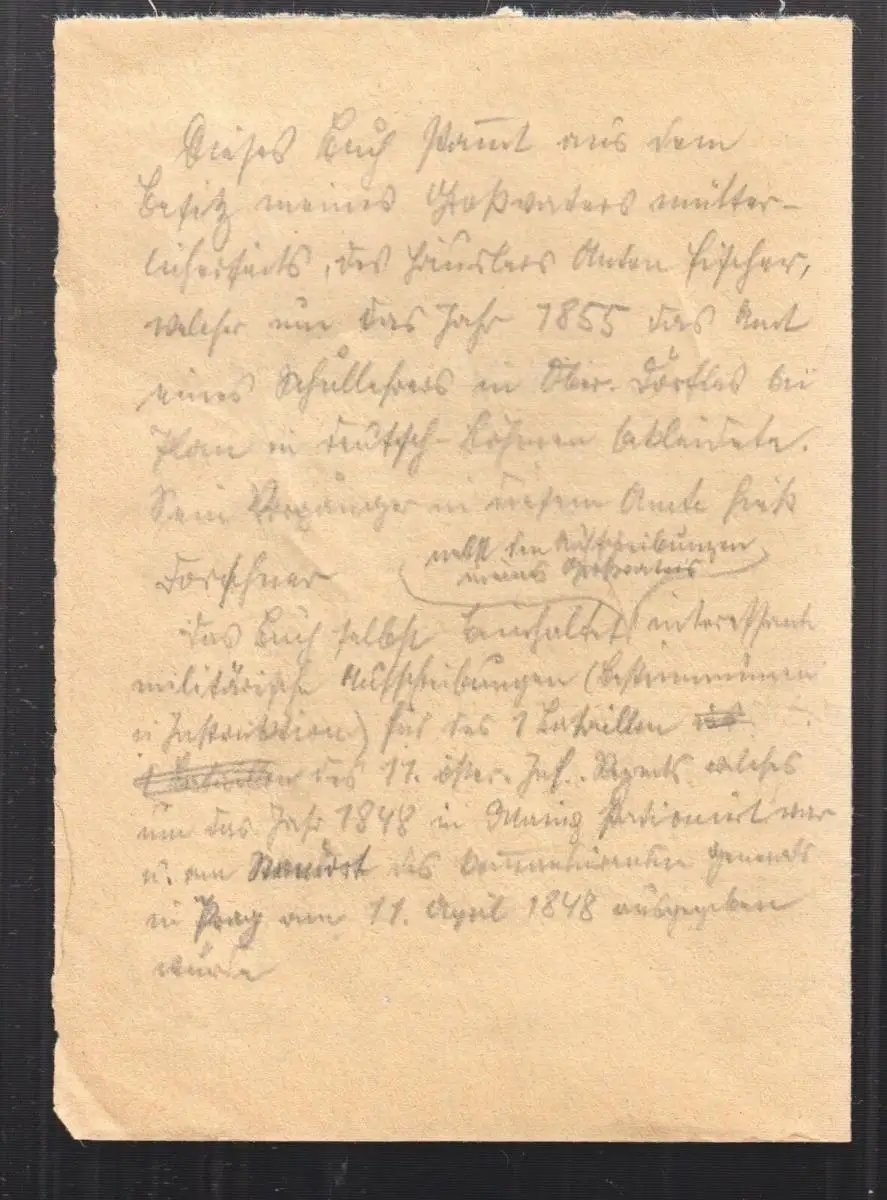 Dieses Buch stam̅t aus dem
Besitz meines Großvaters mütter-
licherseits, des Häuslers Anton Fischer,
welcher um das Jahr 1855 das Amt
eines Schullehrers in Ober-Dörfles bei
Plan in deutsch-Böhmen bekleidete.
Sein Vorgänger in diesem Amte hieß
nebst den Aufschreibungen
meines Großvaters
Forschner
Das Buch selbst beinhaltet interessante
militärische Aufschreibungen (Bestimmungen
u Instruktion) für das 1 Bataillon
des 11. öster. Inf. Regmts. welches
um das Jahr 1848 in Mainz stationiert war
u. am Standort des Kom̅andierenden Generals
in Prag am 11. April 1848 ausgegeben
wurde